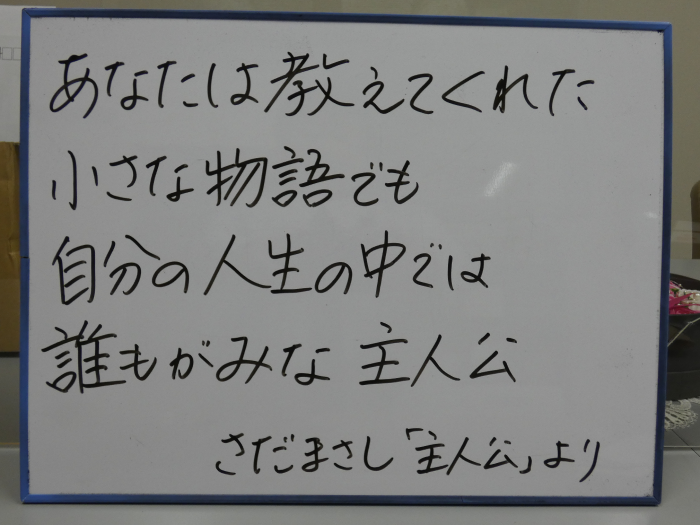 あなたは教えてくれた
小さな物語でも
自分の人生の中では
誰もがみな 主人公
さだまさし「主人公」より